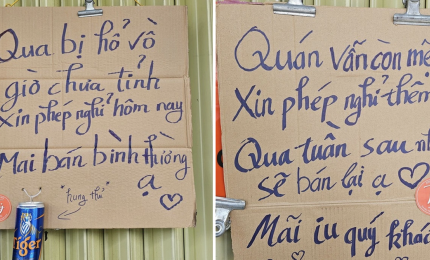 Qua bị hổ vồ
giờ chưa tỉnh
Xin phép nghỉ hôm nay
Mai bán bình thường
ạ
"hung thủ"
Tiger
Quán vẫn còn mệ
Xin phép nghỉ thêm
Qua tuần sau nh
sẽ bán lại ạ
Mãi iu quý khác